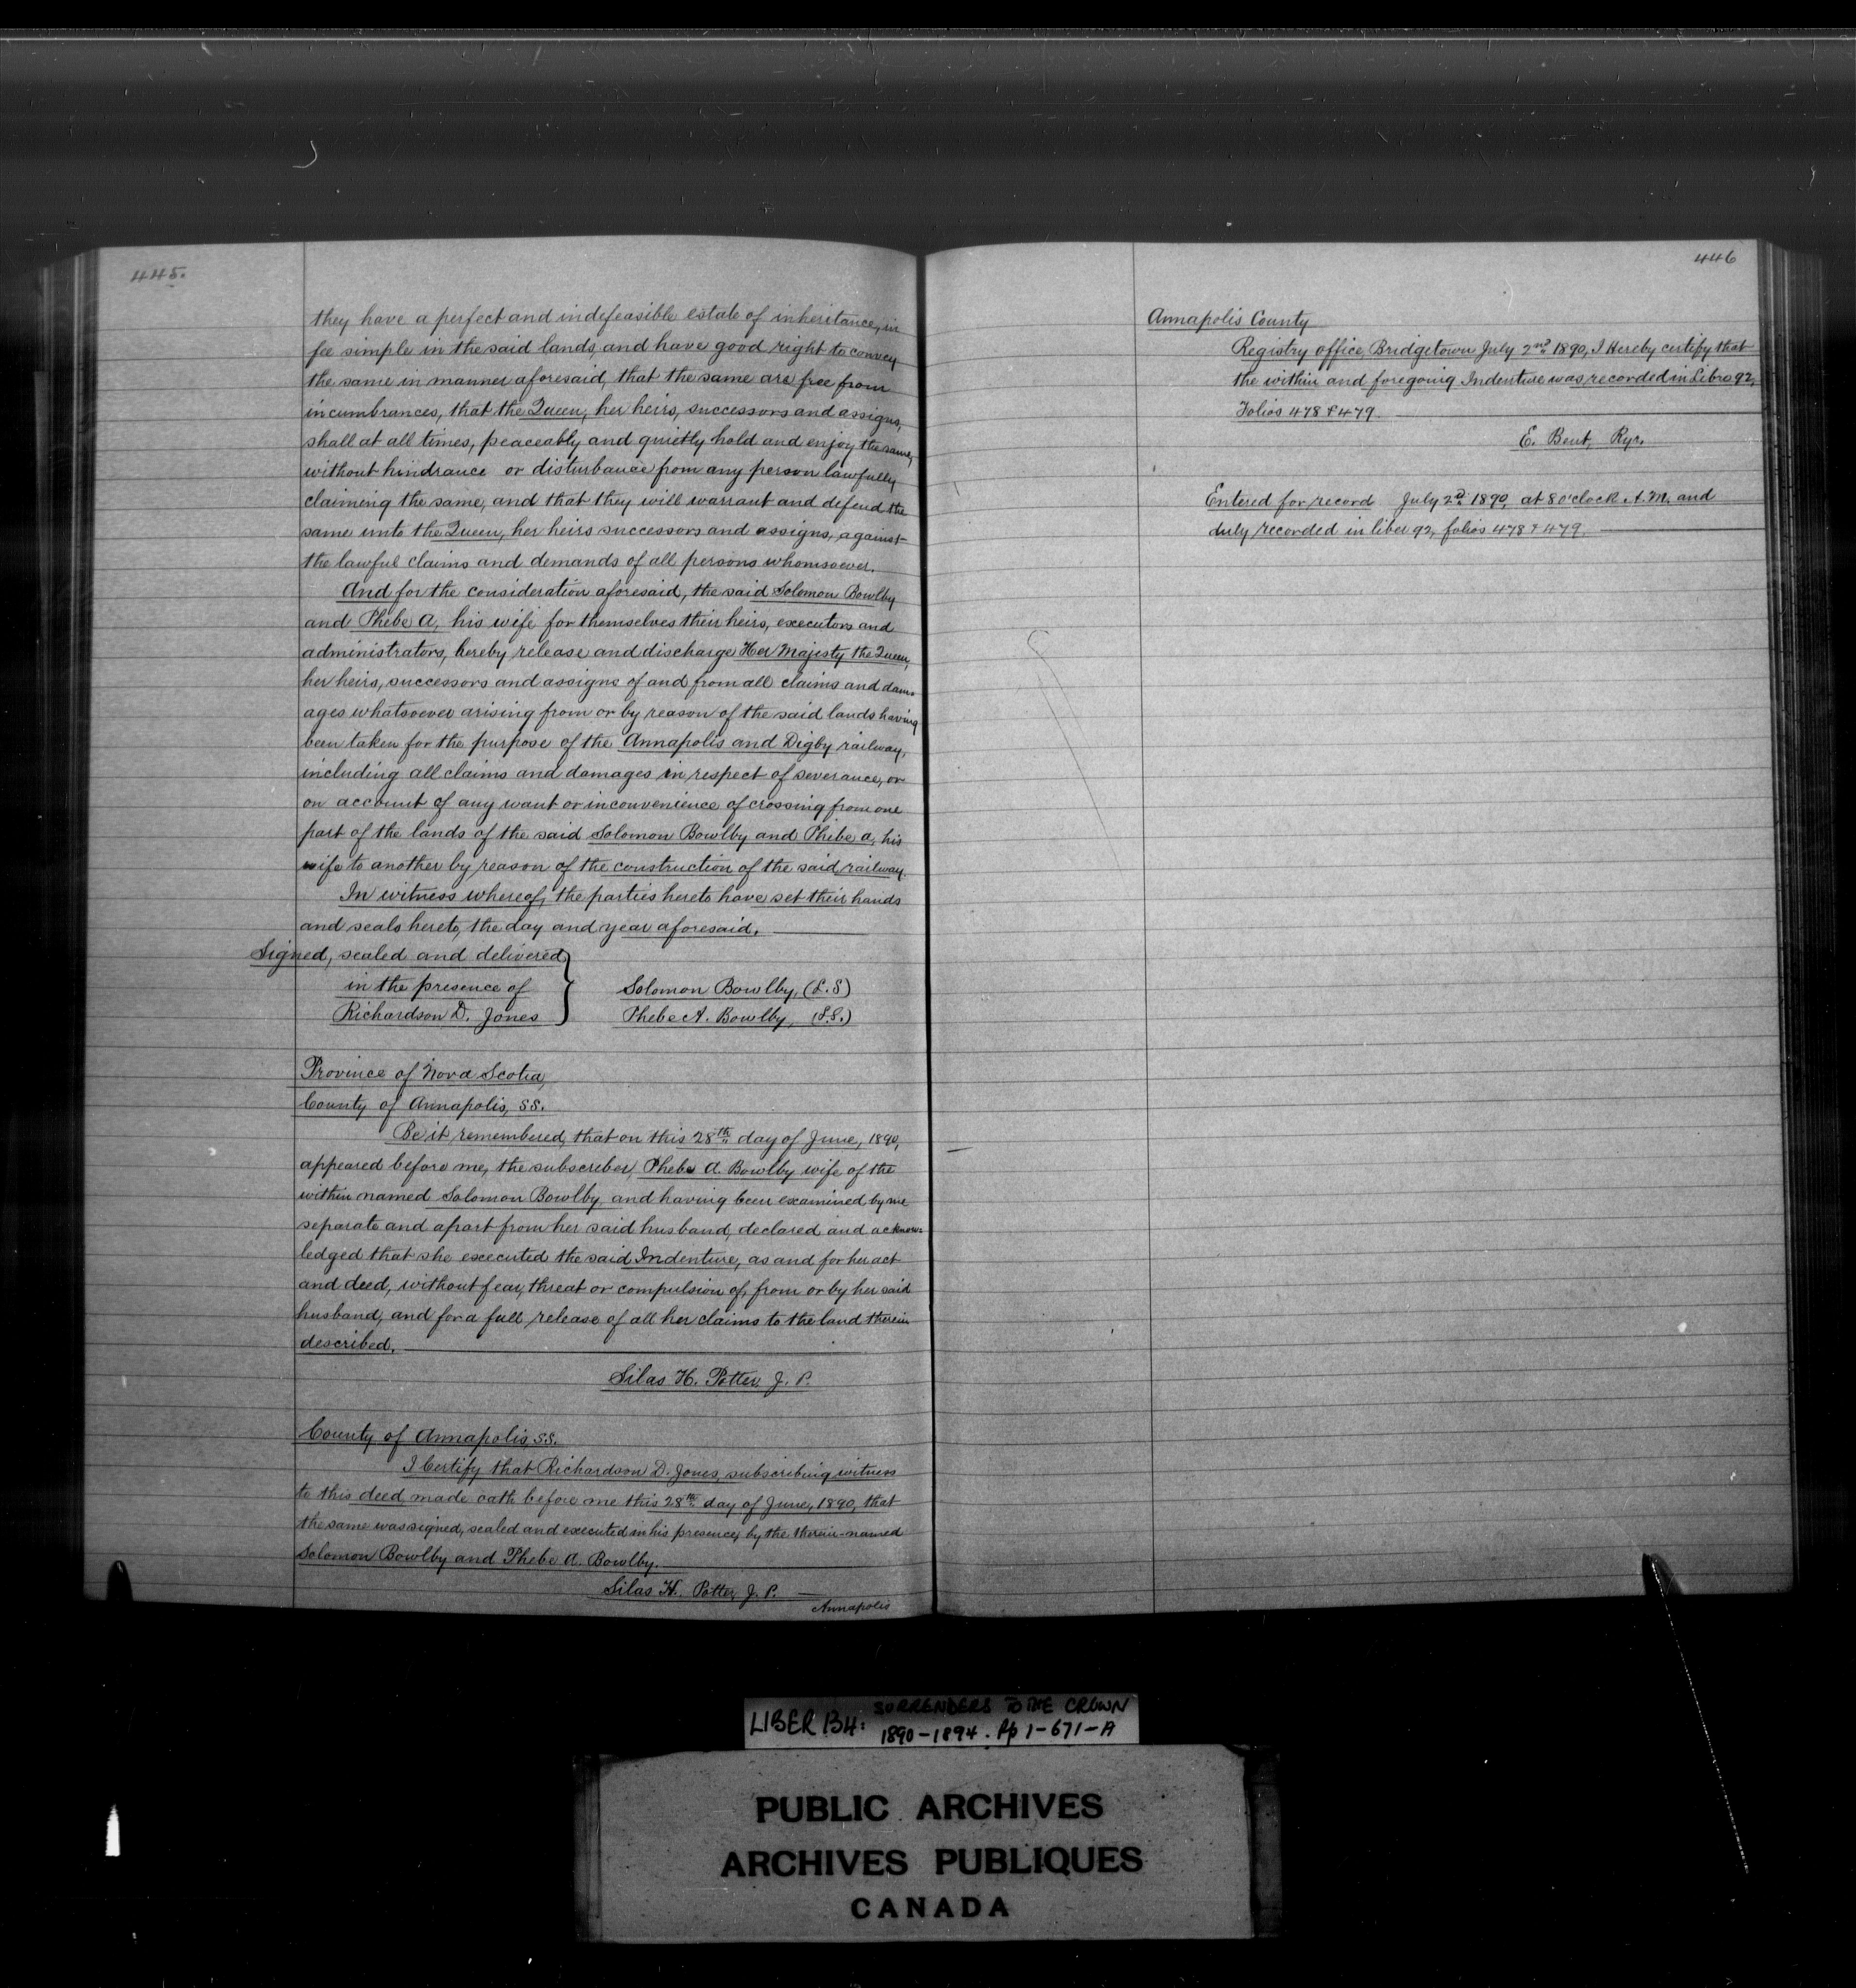 445.
they have a perfect and indefeasible estate of inheritance, in
fee simple in the said lands, and have good right to convey
the same in manner aforesaid, that the same are free from
incumbrances, that the Queen, her heirs, successors and assigns,
shall at all times, peaceably and quietly hold and enjoy the same,
without hindrance or disturbance from any person lawfully
claiming the same, and that they will warrant and defend the
same unto the Queen, her heirs successors and assigns, against
the lawful claims and demands of all persons whomsoever.
And for the consideration aforesaid, the said Solomon Bowlby
and Phebe A, his wife for themselves their heirs, executors and
administrators, hereby release and discharge Her Majesty the Queen,
her heirs, successors and assigns of and from all claims and dam-
ages whatsoever arising from or by reason of the said lands having
been taken for the purpose of the Annapolis and Digby railway,
including all claims and damages in respect of severance, or
on account of any want or inconvenience of crossing from one
part of the lands of the said Solomon Bowlby and Phebe A, his
wife to another by reason of the construction of the said railway.
In witness whereof, the parties hereto have set their hands
and seals hereto, the day and year aforesaid.
Signed, sealed and delivered
in the presence of
Richardson D. Jones
Solomon Bowlby, (L.S)
Phebe A. Bowlby, (L.S.)
Province of Nova Scotia,
County of Annapolis, SS.
Be it remembered, that on this 28th day of June, 1890,
appeared before me, the subscriber, Phebe A. Bowlby wife of the
within named Solomon Bowlby, and having been examined by me
separate and apart from her said husband, declared and acknow-
ledged that she executed the said Indenture, as and for her act
and deed, without fear, threat or compulsion of, from or by her said
husband, and for a full release of all her claims to the land therein
described.
Silas H. Potter, J. P.
County of Annapolis, S.S.
I Certify that Richardson D. Jones, subscribing witness
to this deed, made oath before me this 28th day of June, 1890, that
the same was signed, sealed and executed in his presence, by the therein-named
Solomon Bowlby and Phebe A. Bowlby.
Silas H. Potter, J. P.
Annapolis
446
Annapolis County
Registry office, Bridgetown July 2nd 1890, I Hereby certify that
the within and foregoing Indenture was recorded in Libro 92,
Folios 478 & 479.
E. Bent, Rgr.
Entered for record July 2d 1890, at 8 o'clock A.M. and
duly recorded in liber 92, folios 478 & 479.
LIBER 134: SURRENDERS TO THE CROWN
1890-1894. Pp 1-671-A
PUBLIC ARCHIVES
ARCHIVES PUBLIQUES
CANADA